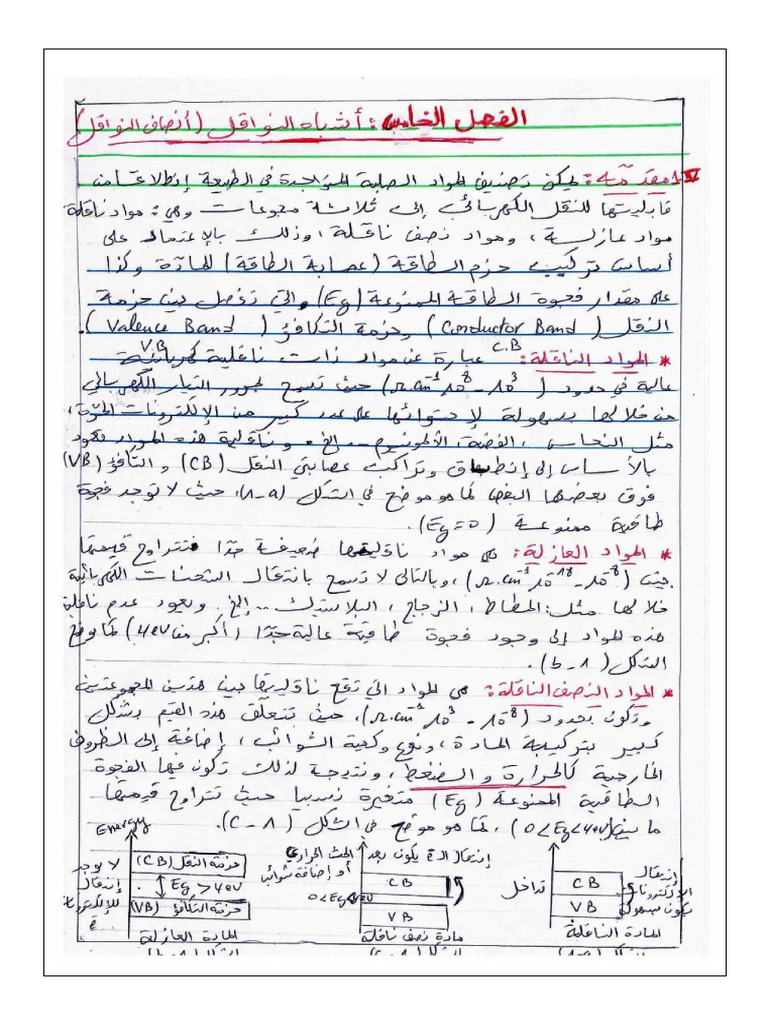 الفصل الخامس: أشباه النواقل (أنصاف النواقل)
1 مقدمة: يمكن تصنيف المواد الصلبة المتواجدة في الطبيعة إنطلاقا من
قابليتها للنقل الكهربائي إلى ثلاثة مجموعات وهي: مواد ناقلة
مواد عازلة، ومواد نصف ناقلة، وذلك بالإعتماد على
أساس تركيب حزم الطاقة (عصابة الطاقة) للمادة وكذا
على مقدار فجوة الطاقة الممنوعة (Eg) والتي تفصل بين حزمة
النقل (Conductor Band) وحزمة التكافؤ (Valence Band).
C.B V.B
* المواد الناقلة: عبارة عن مواد ذات ناقلية كهربائية
عالية في حدود (10³ - 10⁸ Ω.cm⁻¹) حيث تسمح لمرور التيار الكهربائي
من خلالها بسهولة لإحتوائها على عدد كبير من الإلكترونات الحرة،
مثل النحاس، الفضة، الألمونيوم ... إلخ. وناقلية هذه المواد تعود
بالأساس إلى إنطباق وتراكب عصابتي النقل (CB) و التكافؤ (VB)
فوق بعضها البعض كما هو موضح في الشكل (1-a)، حيث لا توجد فجوة
طاقية ممنوعة (Eg = 0).
* المواد العازلة: هي مواد ناقليتها ضعيفة جدا تتراوح قيمتها
بين (10⁻⁸ - 10⁻¹⁸ Ω.cm⁻¹)، وبالتالي لا تسمح بانتقال الشحنات الكهربائية
خلالها مثل: المطاط، الزجاج، البلاستيك ... إلخ. ويعود عدم ناقلية
هذه المواد إلى وجود فجوة طاقية عالية جدا (أكبر من 4eV) كما يوضح
الشكل (1-b).
* المواد النصف الناقلة: هي المواد التي تقع ناقليتها بين هذين المجموعتين
وتكون بحدود (10⁻⁸ - 10³ Ω.cm⁻¹)، حيث تتعلق هذه القيم بشكل
كبير بتركيبة المادة، ونوع وكمية الشوائب، إضافة إلى الظروف
الخارجية كالحرارة والضغط، ونتيجة لذلك تكون فيها الفجوة
الطاقية الممنوعة (Eg) متغيرة نسبيا حيث تتراوح قيمتها
ما بين (0<Eg<4eV)، كما هو موضح في الشكل (1-c).
إنتقال
الإلكترونات
تكون بسهولة
CB
VB
تداخل
المادة الناقلة
إنتقال e يكون بعد الحث الحراري
أو إضافة شوائب
0<Eg<4eV
CB
VB
مادة نصف ناقلة
Energy
حزمة النقل (CB)
Eg > 4eV
حزمة التكافؤ (VB)
لا يوجد
إنتقال
للإلكترونات
المادة العازلة